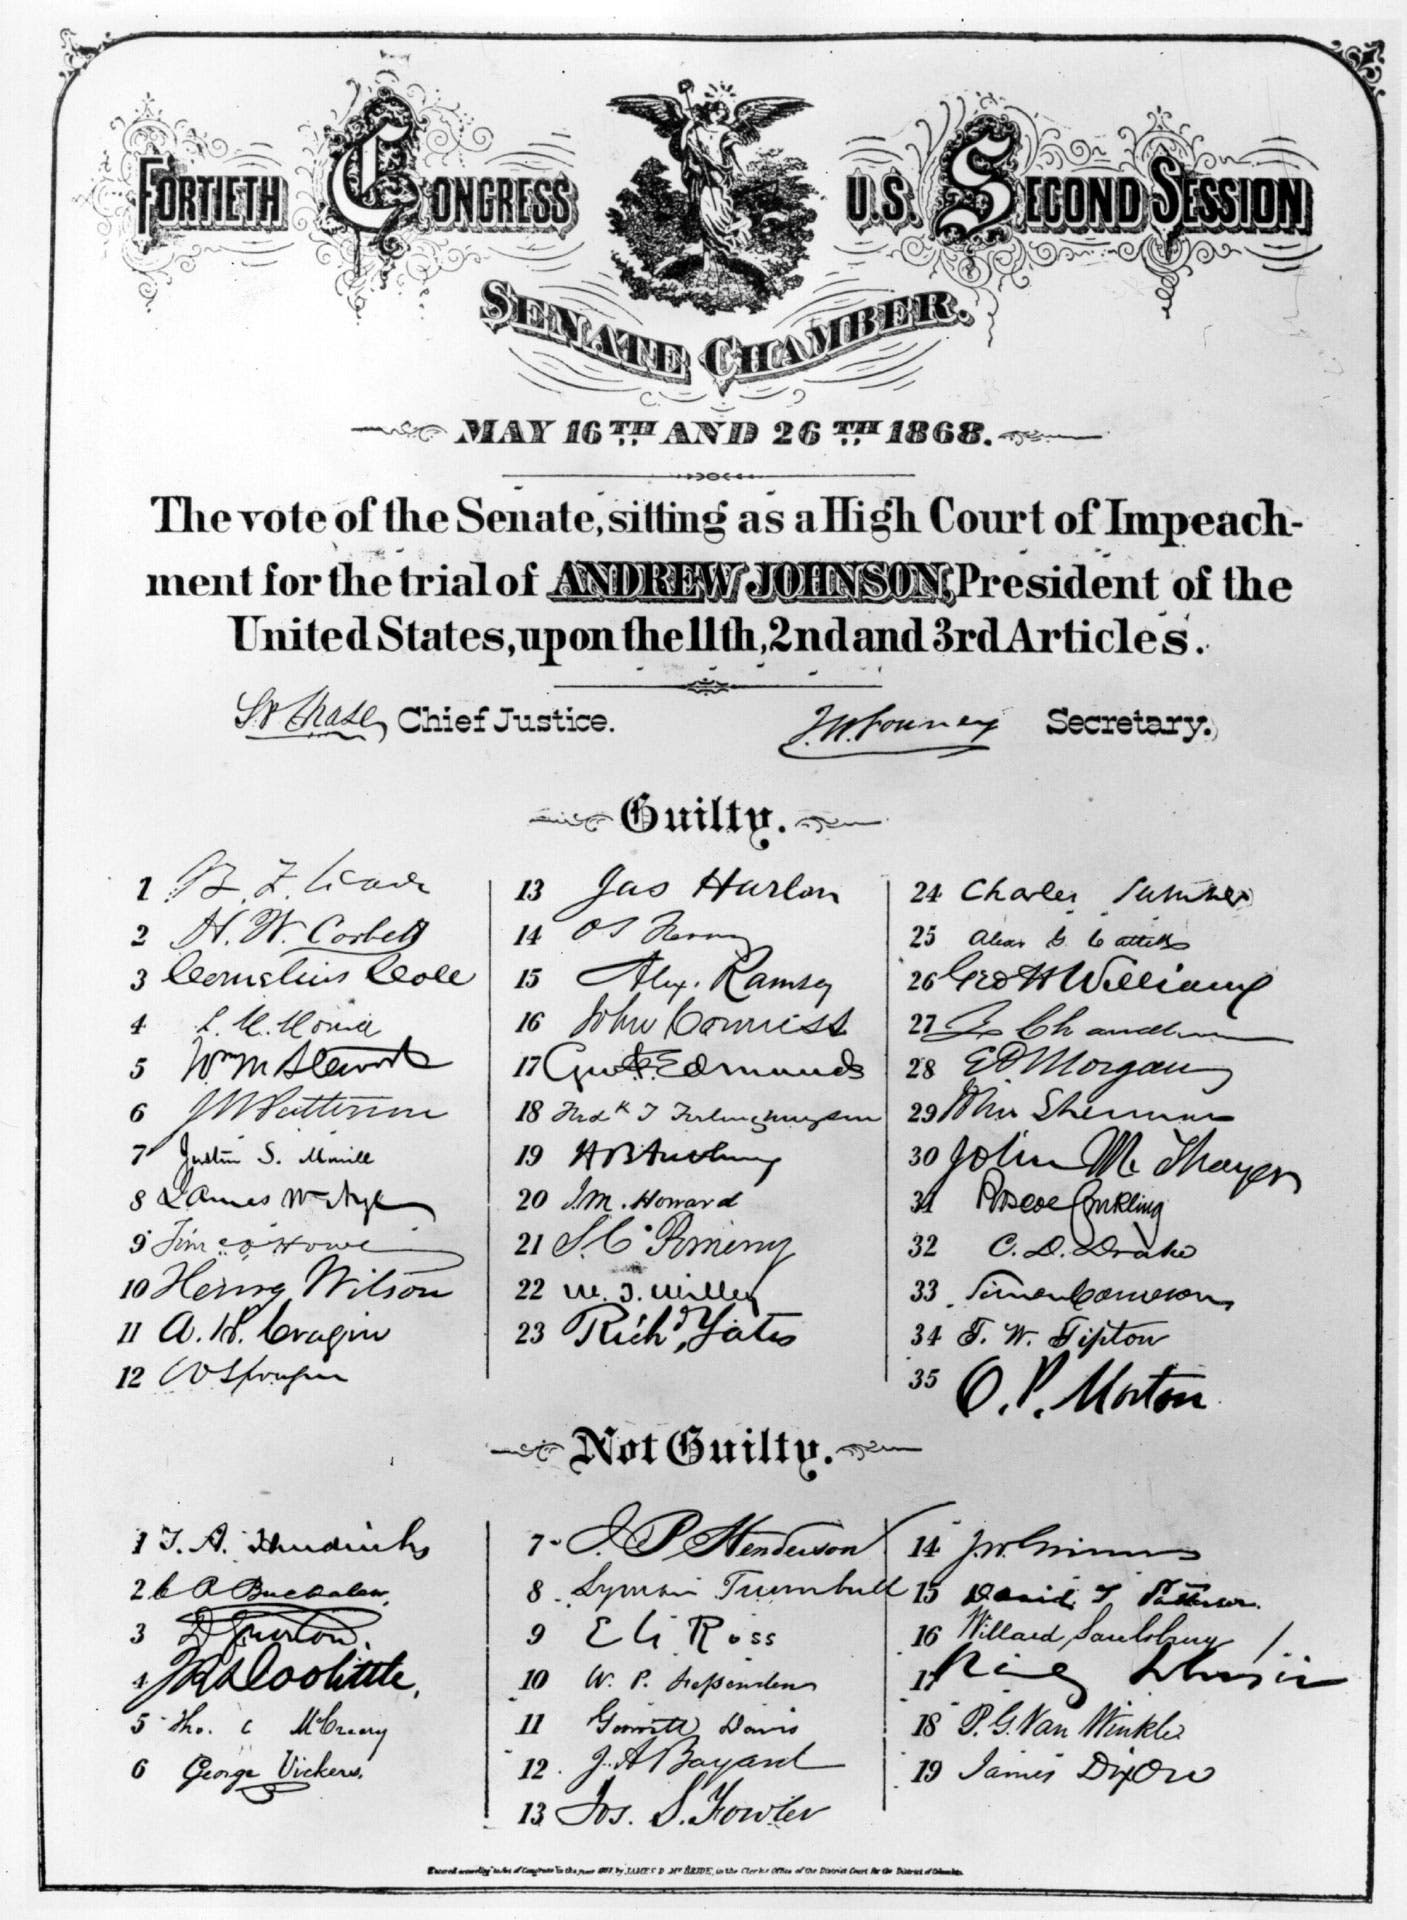 FORTIETH CONGRESS U.S. SECOND SESSION
SENATE CHAMBER.
MAY 16TH AND 26TH 1868.
The vote of the Senate, sitting as a High Court of Impeach-
ment for the trial of ANDREW JOHNSON, President of the
United States, upon the 11th, 2nd and 3rd Articles.
S P Chase, Chief Justice.
J. W. Forney Secretary.
Guilty.
1 B. F. Wade
2 H. W. Corbett
3 Cornelius Cole
4 L. M. Morrill
5 Wm M Stewart
6 J W Patterson
7 Justin S. Morrill
8 James W. Nye
9 Tim O Howe
10 Henry Wilson
11 A. H. Cragin
12 W Sprague
13 Jas Harlan
14 O S Ferry
15 Alex. Ramsey
16 John Conness
17 Geo. F. Edmunds
18 Fredk T Frelinghuysen
19 H B Anthony
20 J. M. Howard
21 S. C. Pomeroy
22 W. T. Willey
23 Richd Yates
24 Charles Sumner
25 Alex G. Cattell
26 Geo H Williams
27 Z Chandler
28 E D Morgan
29 John Sherman
30 John M Thayer
31 Roscoe Conkling
32 C. D. Drake
33 Simon Cameron
34 T. W. Tipton
35 O. P. Morton
Not Guilty.
1 T. A. Hendricks
2 C R Buckalew
3 D S Norton.
4 J R Doolittle.
5 Tho. C McCreery
6 George Vickers.
7 J. B Henderson
8 Lyman Trumbull
9 E G Ross
10 W. P. Fessenden
11 Garrett Davis
12 J. A Bayard
13 Jos. S. Fowler
14 J. W. Grimes
15 David T Patterson.
16 Willard Saulsbury
17 Reverdy Johnson
18 P. G. Van Winkle
19 James Dixon
Entered according to Act of Congress in the year 1868 by JAMES D. McBRIDE, in the Clerks Office of the District Court for the District of Columbia.